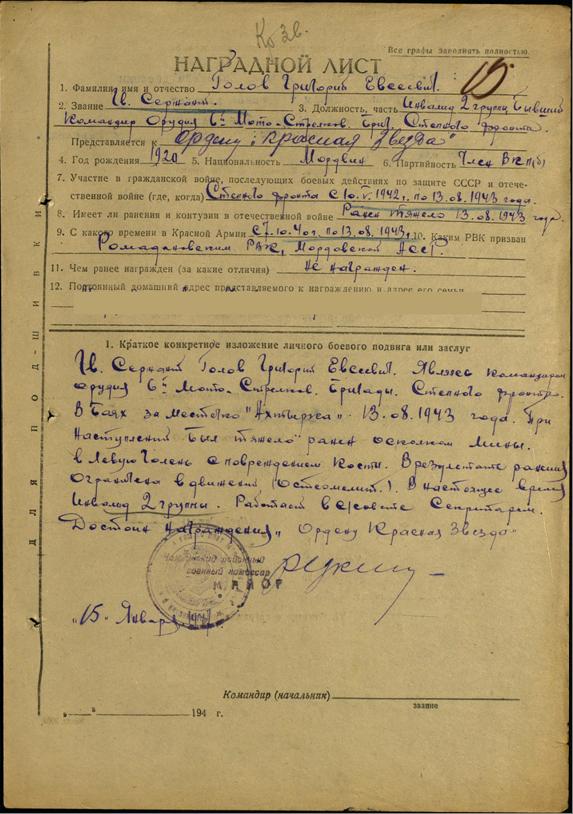 Ко Зв.
Все графы заполнять полностью.
НАГРАДНОЙ ЛИСТ
15
1. Фамилия, имя и отчество Голов Григорий Евсеевич.
2. Звание Гв. Сержант. 3. Должность, часть Инвалид 2 группы Бывший
Командир Орудия 6й Мото-Стрелков. Бриг. Степного фронта.
Представляется к Ордену "Красная Звезда"
4. Год рождения 1920 5. Национальность Мордвин 6. Партийность Член ВКП(б)
7. Участие в гражданской войне, последующих боевых действиях по защите СССР и отече-
ственной войне (где, когда) Степного фронта с 10.V.1942г. по 13.08.1943 года.
8. Имеет ли ранения и контузии в отечественной войне Ранен тяжело 13.08.1943 года
9. С какого времени в Красной Армии с 7.10.40г. по 13.08.1943г. 10. Каким РВК призван
Ромадановским РВК, Мордовской АССР.
11. Чем ранее награжден (за какие отличия) Не награжден.
12. Постоянный домашний адрес представляемого к награждению и адрес его семьи
1. Краткое конкретное изложение личного боевого подвига или заслуг
Гв. Сержант Голов Григорий Евсеевич. Являясь командиром
орудия 6й Мото-Стрелков. Бригады. Степного фронта.
В боях за местечко "Ахтырка" 13.08.1943 года. При
Наступлений был тяжело ранен осколком мины.
в Левую Голень с повреждением Кости. В результате ранения
в движений (Остеомелит.). В настоящее время
Инвалид 2 группы. Работает в с/совете Секретарем.
Достоин награждения " Ордену Красная Звезда"
районный
военный комиссар
МАЙОР
"15" Января 1947.
Командир (начальник)
звание
" " 194 г.
ДЛЯ ПОДШИВКИ